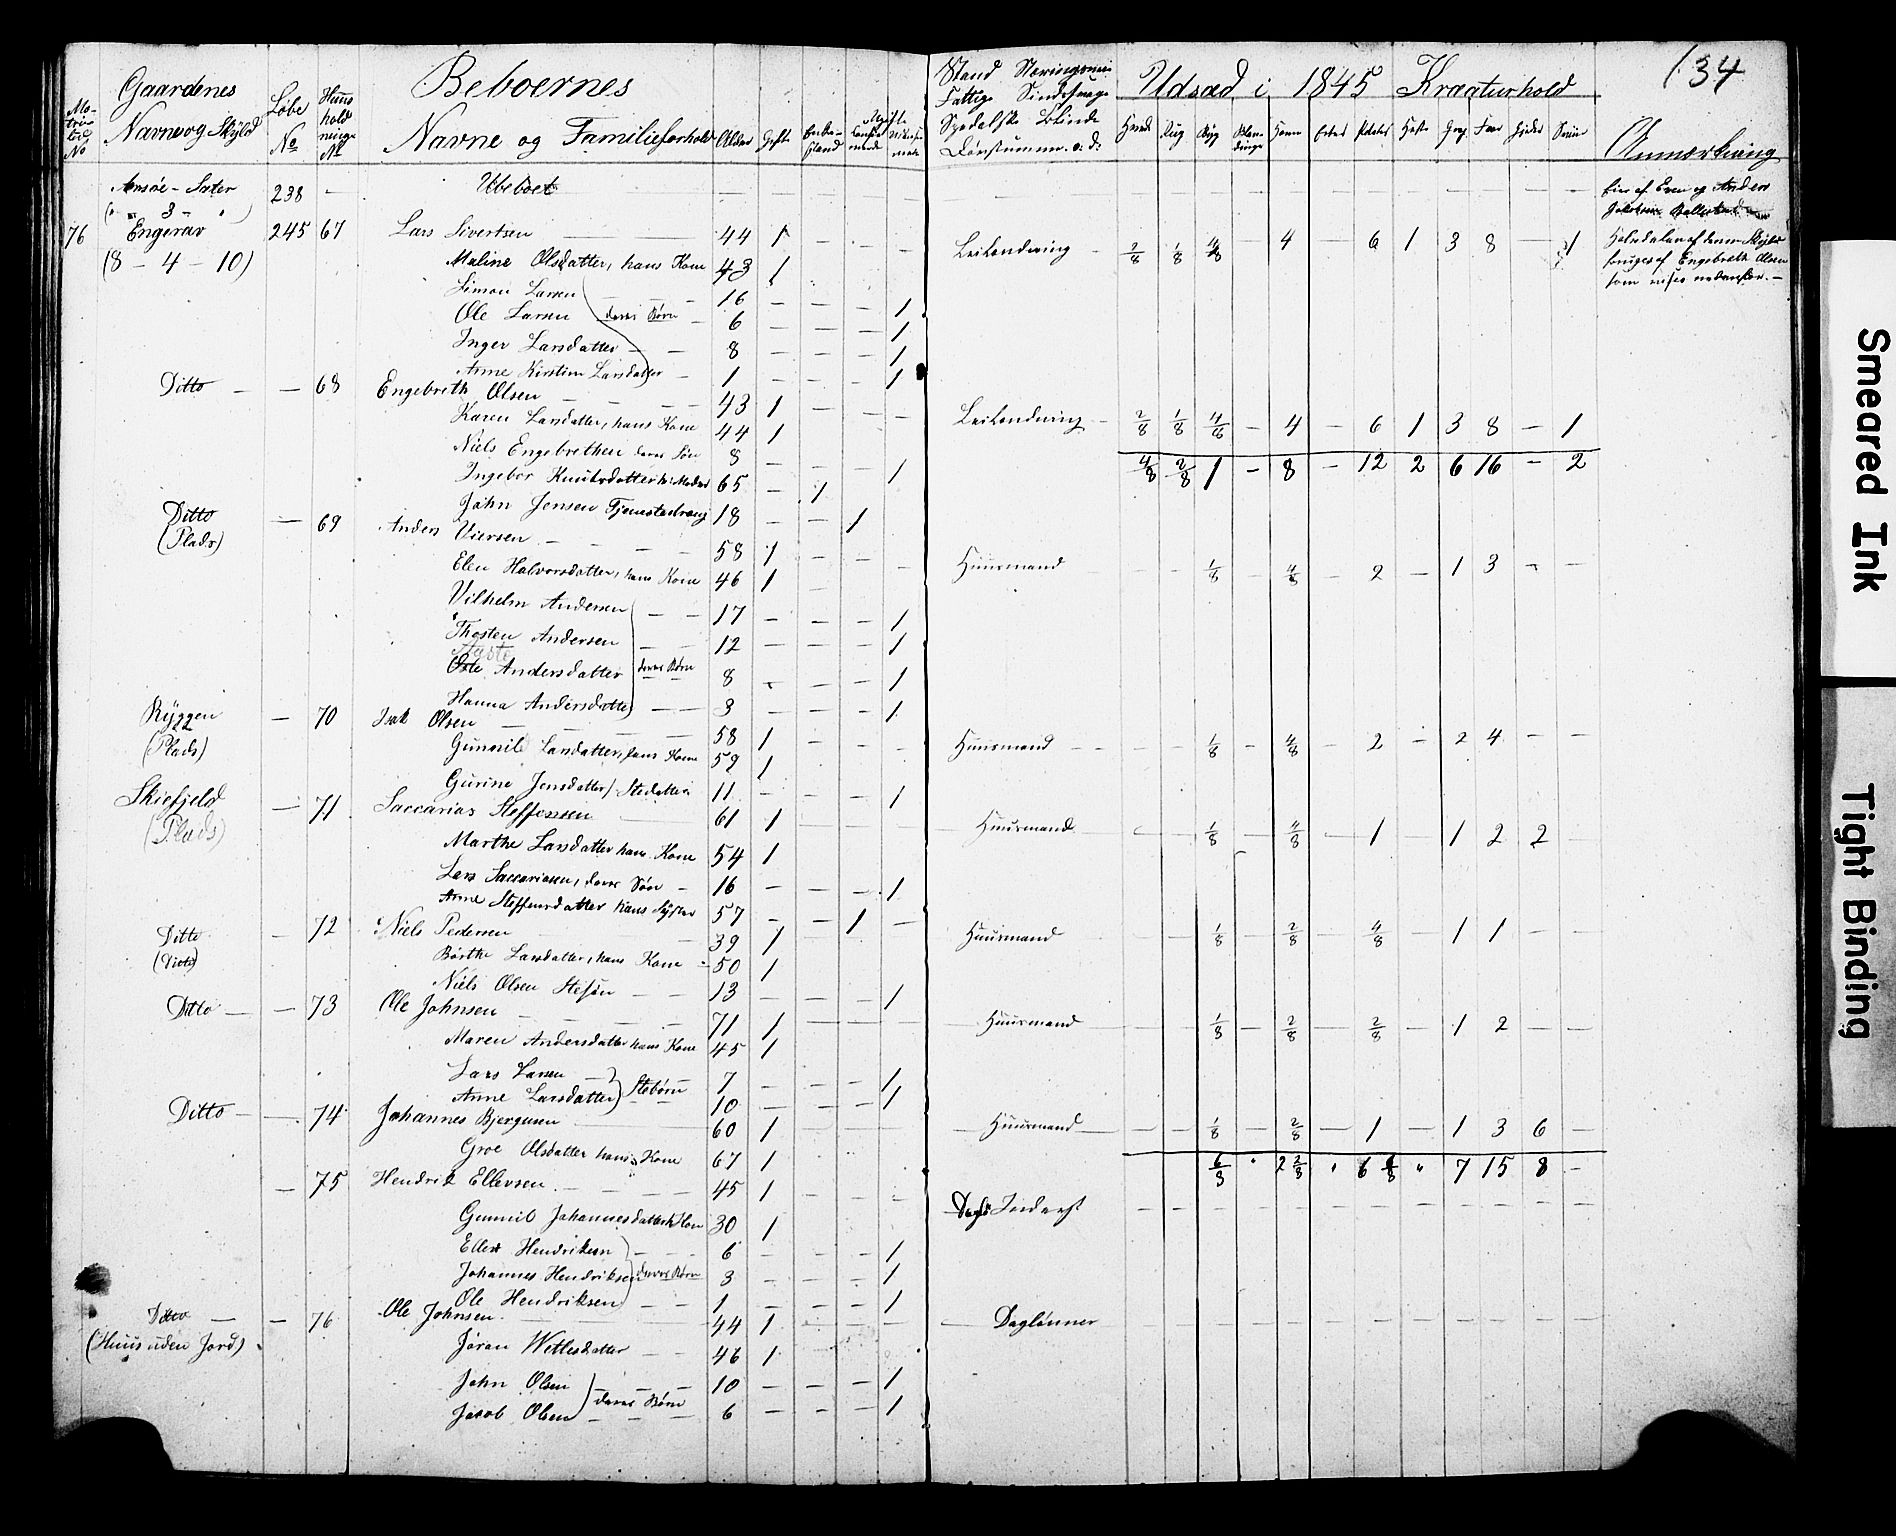 134
Matricul No | Gaardenes Navne og Skÿld | Løbe No | Huusholdninges No | Beboernes Navne og Familieforhold | Alder | Gifte | Enkestand | Ugifte
Stand Næringsvei Fattige Sindssvage Spedalske Blinde Døvstumme o. d. | Udsæd i 1845 | Kreaturhold | Anmærkning
Hvede | Rug | Byg | Blandinge | Havre | Erter | Poteter | Heste | Faar | Gjeder | Sviin
Sæter 238 — Ubeboet — Even og Anders
( " 3 " )
76 Engerav 245 67 Lars Sivertsen 44 1 — Leilending 2/8 1/8 4/8 — 4 — 6 1 3 8 — 1 Halvdelen af denne Skÿld
(8 – 4 – 10) Maline Olsdatter, hans Kone 43 1 bruges af Engebreth Olsen
Simon Larsen 16 — 1 som vises nedenfor. —
Ole Larsen deres Børn 6 — 1
Inger Larsdatter 8 — 1
Anne Kirstine Larsdatter 1 — 1
Ditto — 68 Engebreth Olsen 43 1 — Leilending 2/8 1/8 4/8 — 4 — 6 1 3 8 — 1
Karen Larsdatter, hans Kone 44 1
Niels Engebrethsen deres Søn 8 — 1 4/8 2/8 1 — 8 — 12 2 6 16 — 2
Ingebor Knudsdatter h: Moder 65 — 1
John Jensen Tjenestedreng 18 — 1
Ditto — 69 Anders Viersen 58 1 — Huusmand — 1/8 — 4/8 — 2 — 1 3 — —
(Plads) Elen Halvorsdatter, hans Kone 46 1
Vilhelm Andersen 17 — 1
Thosten Andersen 12 — 1
Andersdatter deres Børn 8 — 1
Hanna Andersdatter 3 — 1
Rÿggen — 70 Isak Olsen 58 1 — Huusmand — 1/8 — 4/8 — 2 — 2 4 — —
(Plads) Gunnild Larsdatter, hans Kone 59 1
Gurine Jensdatter, Stedatter 11 — 1
Skiefjeld — 71 Saccarias Steffensen 61 1 — Huusmand — 1/8 — 4/8 — 1 — 1 2 2 —
(Plads) Marthe Larsdatter hans Kone 54 1
Lars Saccariasen, deres Søn 16 — 1
Anne Steffensdatter hans Sÿster 57 — 1
Ditto — 72 Niels Pedersen 39 1 — Huusmand — 1/8 — 2/8 — 4/8 — 1 1 — —
(Ditto) Børthe Larsdatter, hans Kone 50 1
Niels Olsen Stesøn 13 — 1
Ditto — 73 Ole Johnsen 71 1 — Huusmand — 1/8 — 2/8 — 2/8 — 1 2 — —
Maren Andersdatter hans Kone 45 1
Lars Larsen 7 — 1
Anne Larsdatter Stebørn 10 — 1
Ditto — 74 Johannes Bjergusen 60 1 — Huusmand — 1/8 — 2/8 — 1 — 1 3 6 —
Groe Olsdatter hans Kone 67 1
— 75 Hendrik Ellevsen 45 1 6/8 " 2 2/8 " 6 6/8 " 7 15 8 —
Gunnild Johannesdatter h Kone 30 1 Inderst
Ellev Hendriksen 6 — 1
Johannes Hendriksen deres Børn 3 — 1
Ole Hendriksen 1 — 1
Ditto — 76 Ole Johnsen 44 1 — Daglønner
(Huus uden Jord) Jøran Wetlesdatter 46 1
John Olsen 10 — 1
Jacob Olsen deres Børn 6 — 1
Smeared Ink
Tight Binding